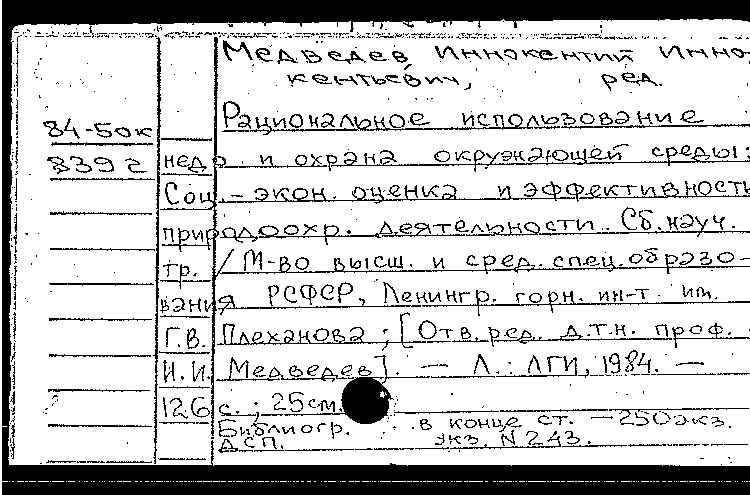 Медведев, Иннокентий Инно-
кентьевич, ред.
84-5ок
839г
Рациональное использование
недр и охрана окружающей среды:
Соц.-экон. оценка и эффективность
природоохр. деятельности. Сб. науч.
тр. / М-во высш. и сред. спец. образо-
вания РСФСР, Ленингр. горн. ин-т. им.
Г.В. Плеханова ; [Отв. ред. д.т.н. проф.
И.И. Медведев]. — Л. : ЛГИ, 1984. —
126 с. ; 25 см.
Библиогр. в конце ст. — 250 экз.
ДСП. экз. N 243.